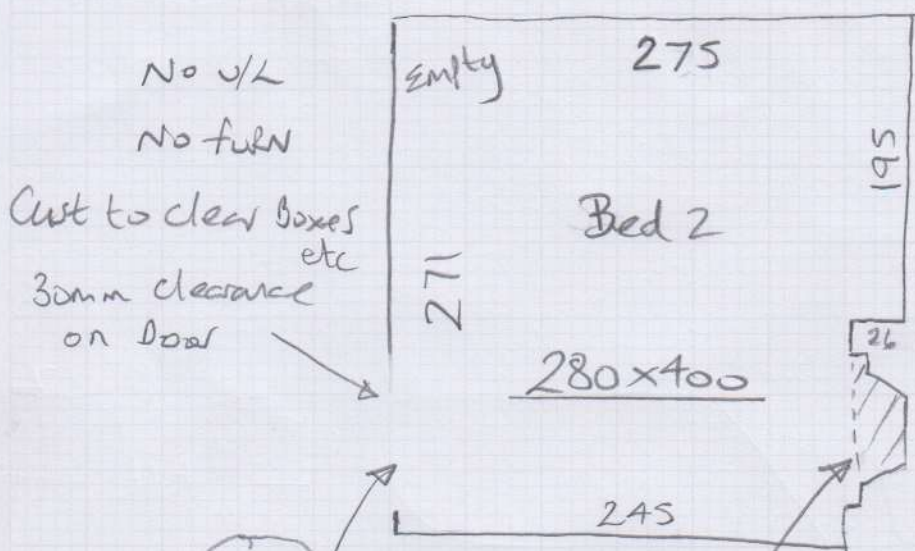 No U/L
No fURN
Cust to clear Boxes
etc
30mm clearance
on Door
Empty
275
195
Bed 2
271
26
280x400
245